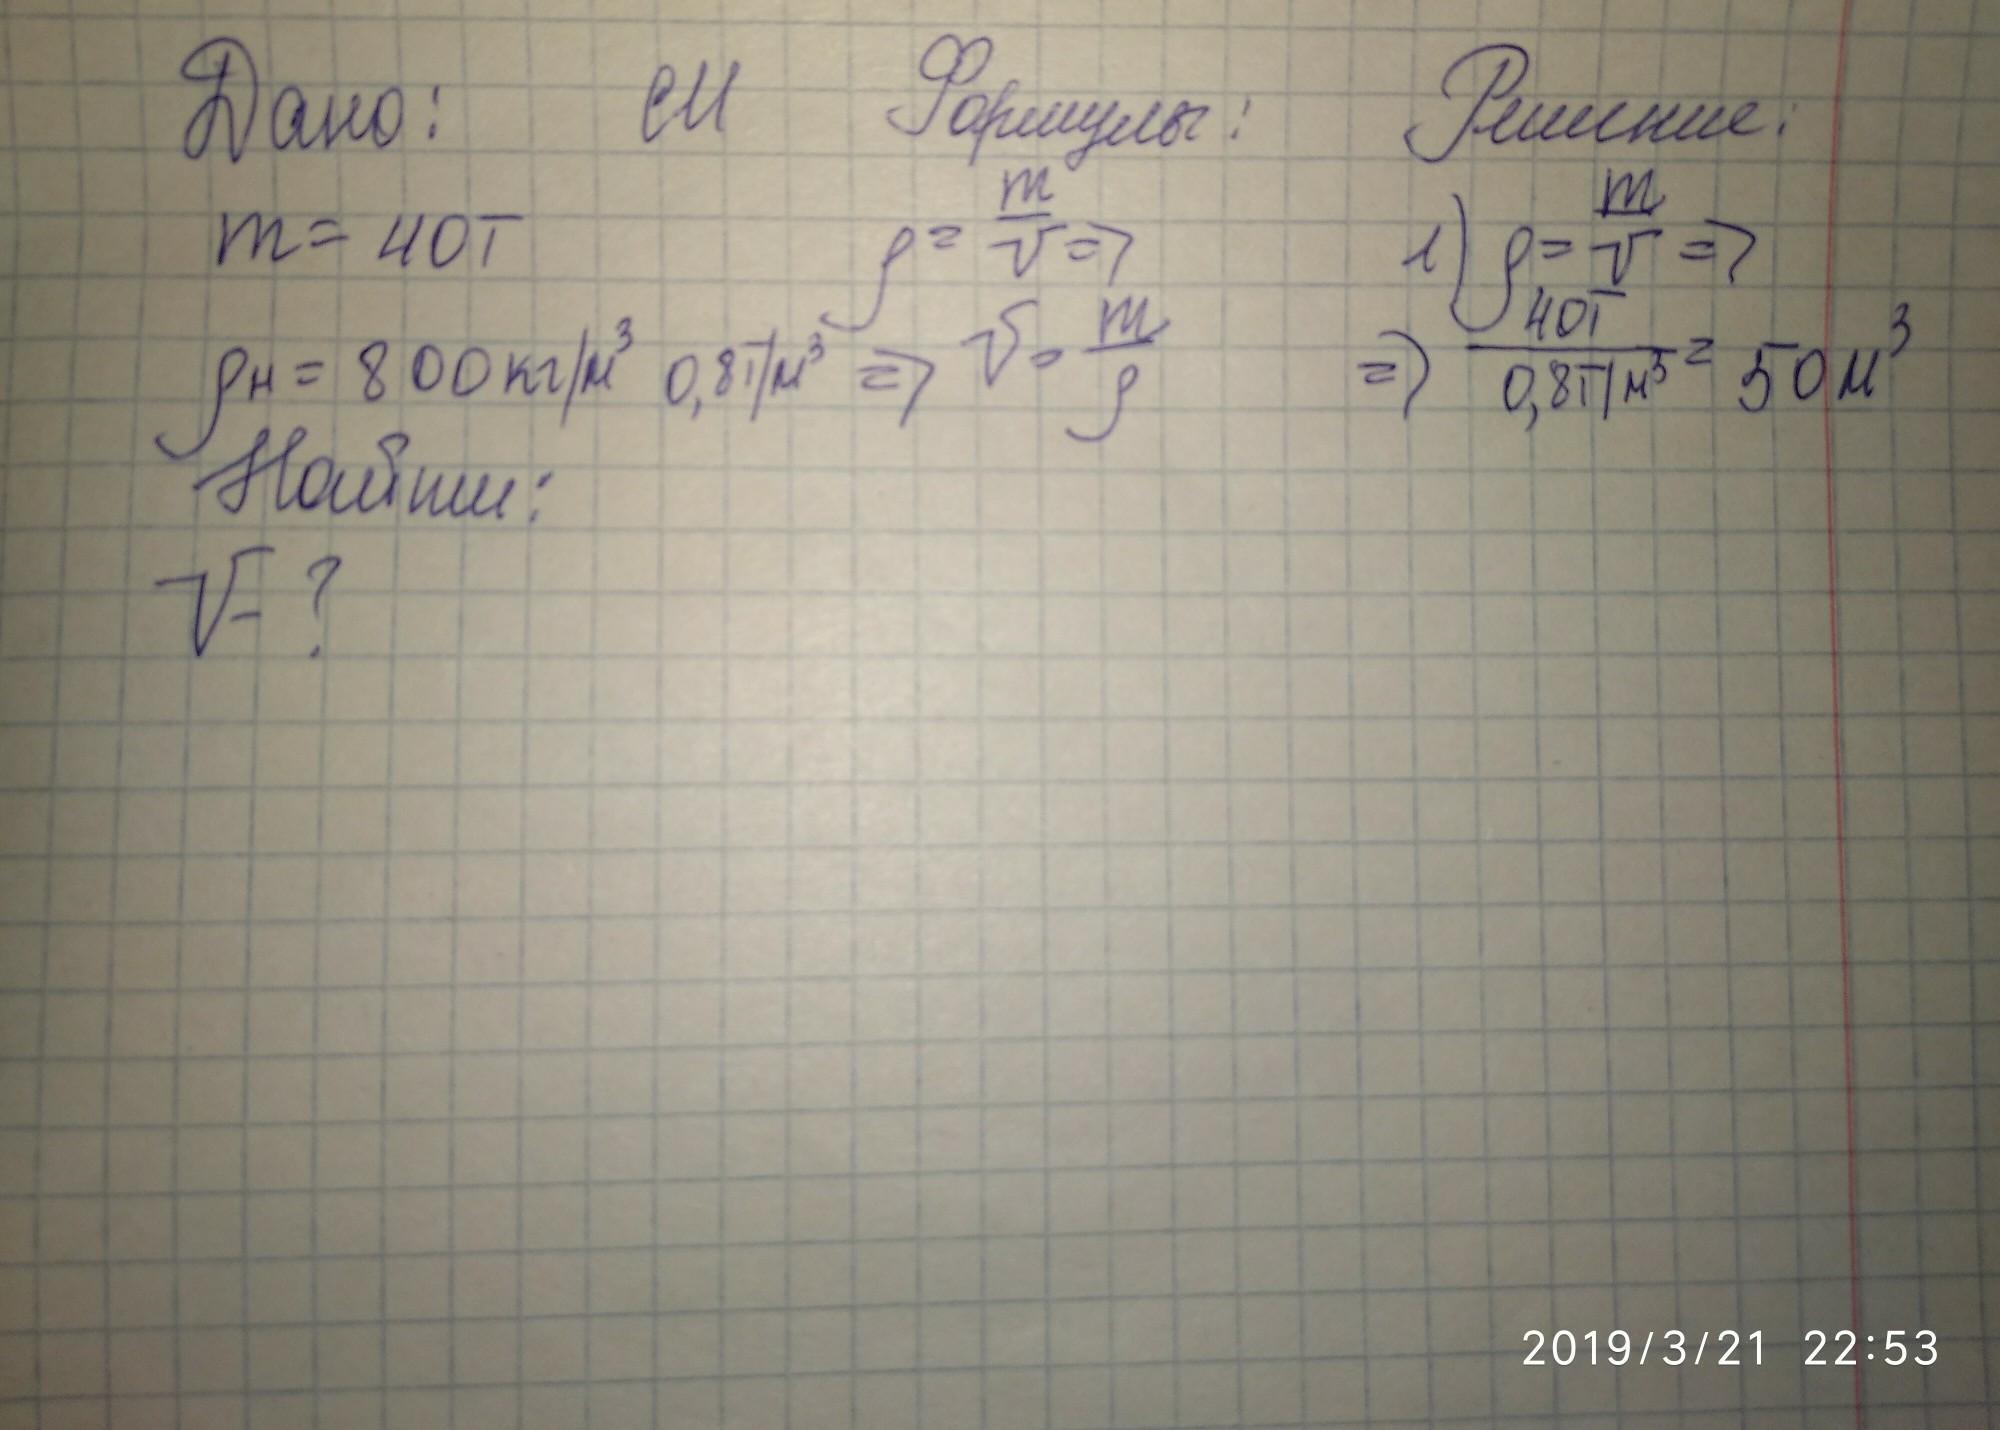 Дано: СИ Формулы: Решение:
m = 40т ρ = m/V => 1) ρ = m/V =>
ρн = 800кг/м³ 0,8т/м³ => V = m/ρ => 40т/0,8т/м³ = 50м³
Найти:
V - ?
2019/3/21 22:53